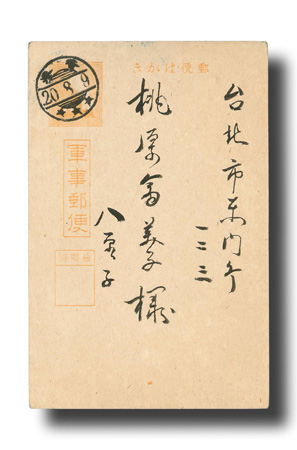 郵便はがき
臺東
20.8.9
軍事郵便
檢閲濟
台北市东門町
一二三
桃原富美子様
八重子